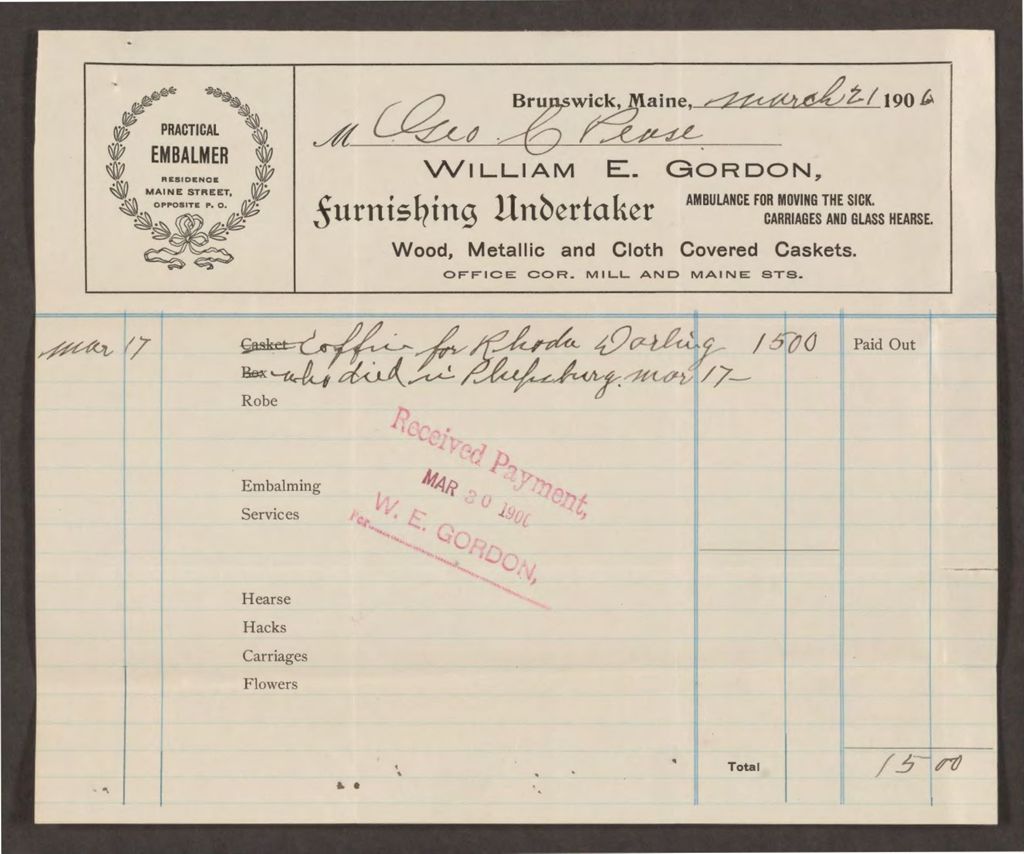 PRACTICAL
EMBALMER
RESIDENCE
MAINE STREET,
OPPOSITE P. O.
Brunswick, Maine, March 21 1906
M Geo C Pease
WILLIAM E. GORDON,
Furnishing Undertaker
AMBULANCE FOR MOVING THE SICK.
CARRIAGES AND GLASS HEARSE.
Wood, Metallic and Cloth Covered Caskets.
OFFICE COR. MILL AND MAINE STS.
Mar 17 Casket Coffin for Rhoda Darling 1500 Paid Out
Box who died in Phipsburg. Mar 17-
Robe
Received Payment,
MAR 30 1906
W. E. GORDON,
Per
Embalming
Services
Hearse
Hacks
Carriages
Flowers
Total 15 00